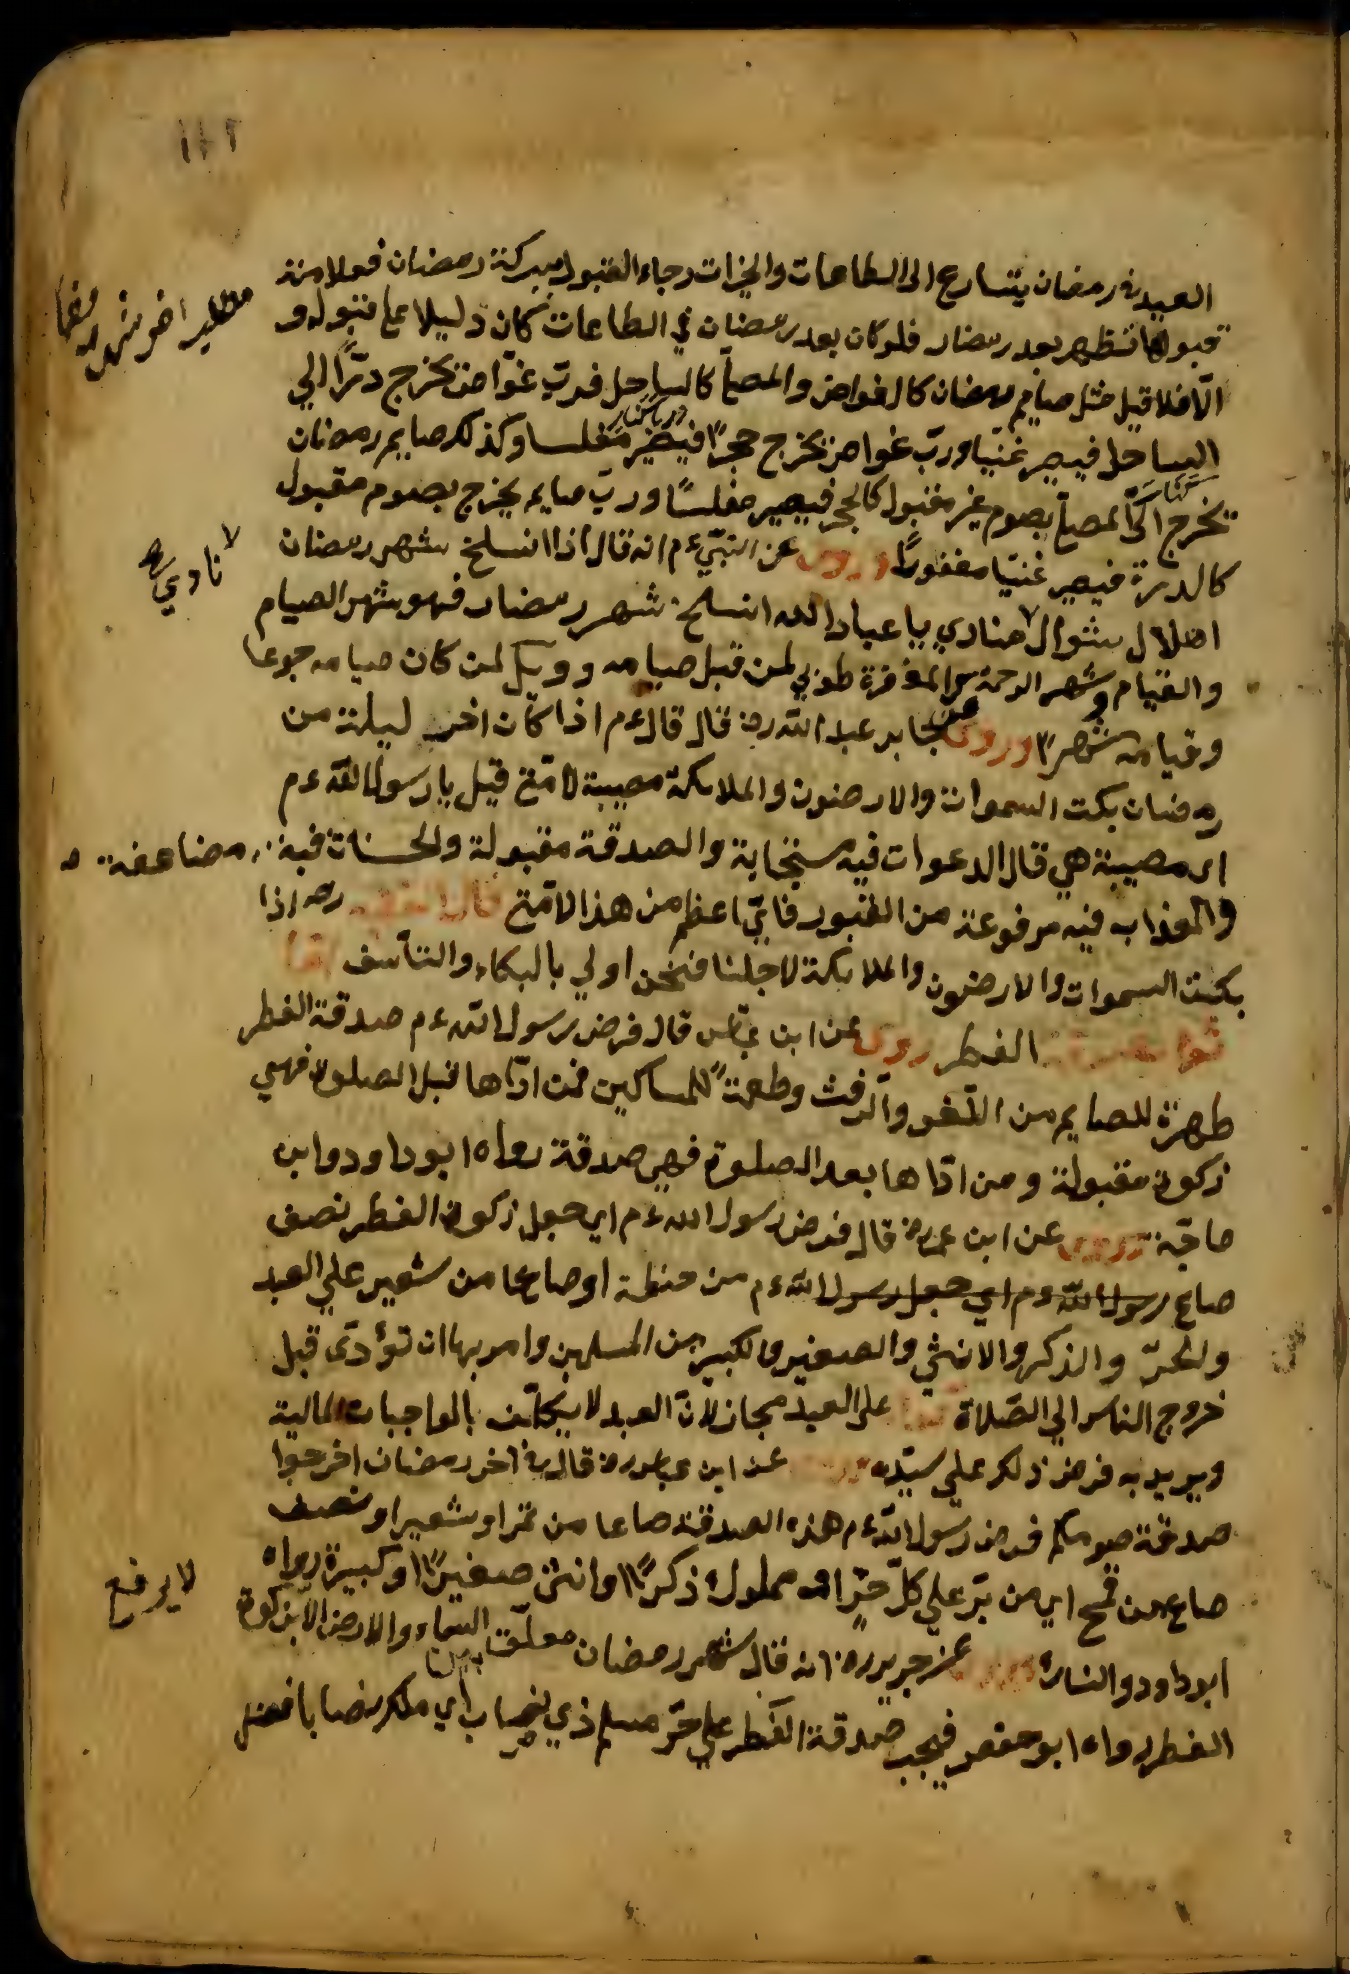 العبد في رمضان يتسارع الى الطاعات والخيرات رجاء القبول ببركة رمضان فعلامة
قبولها تظهر بعد رمضان فلو كان بعد رمضان في الطاعات كان دليلا على قبوله و
الّا فلا قيل مثل صايم رمضان كالغواص والمصلّى كالساحل فربّ غوّاص يخرج درّا الي
الساحل فيصير غنيّا وربّ غواص يخرج حجرًا فيصير مفلسا وكذلك صايم رمضان
يخرج الى المصلّى بصوم غير مقبول كالحجر فيصير مفلسًا وربّ صايم يخرج بصوم مقبول
كالدرة فيصير غنيّا مغفورًا وروى عن النبيّ ءم انه قال اذا انسلخ شهر رمضان
اهلال شوال منادي يا عباد الله انسلخ شهر رمضان فهو شهر الصيام
والقيام وشهر الرحمة والمغفرة طوبي لمن قبل صيامه وويل لمن كان صيامه جوعا
وقيامه سهرًا وروى عن جابر عبد الله رض قال قال ءم اذا كان اخر ليلة من
رمضان بكت السموات والارضون والملائكة مصيبة لامّتي قيل يا رسول الله ءم
اى مصيبة هي قال الدعوات فيه مستجابة والصدقة مقبولة والحسنات فيه مضاعفة
والعذاب فيه مرفوعة من القبور فايّ اعظم من هذا لامّتي قال الفقيه رحه اذا
بكت السموات والارضون والملائكة لاجلنا فنحن اولي بالبكاء والتأسف
الفطر روى عن ابن عبّاس قال فرض رسول الله ءم صدقة الفطر
طهرة للصايم من اللّغو والرّفث وطعمةً للمساكين فمن ادّاها قبل الصلوة فهي
زكوة مقبولة ومن ادّاها بعد الصلوة فهي صدقة رواه ابو داود وابن
ماجّة وروى عن ابن عمر رض قال فرض رسول الله ءم اي جعل زكوة الفطر نصف
صاع رسول الله ءم اي جعل رسول الله ءم من حنطة او صاعا من شعير علي العبد
والحرّ والذكر والانثي والصغير والكبير من المسلمين وامر بها ان تؤدّى قبل
خروج الناس الي الصّلاة على العبد مجاز لانّ العبد لا يكلّف بالواجبات المالية
ويريد به فرض ذلك علي سيّده عن ابن عباس رض قال في اخر رمضان اخرجوا
صدقة صومكم فرض رسول الله ءم هذه الصدقة صاعا من تمر او شعير او نصف
صاع من قمح اي من برّ علي كلّ حرّ او مملوك ذكرًا او انثى صغيرًا او كبيرة رواه
ابو داود والنسائ عن جرير رض انه قال شهر رمضان معلّق بين السماء والارض الا بزكوة
الفطر رواه ابو حفص فيجب صدقة الفطر علي حرّ مسلم ذي نصاب اي ملك نصابا فضل
لا يرفع